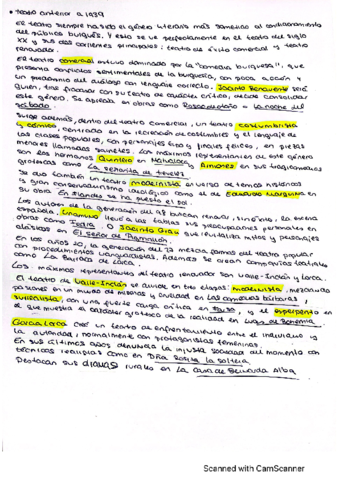 • Teatro anterior a 1939
El teatro siempre ha sido el género literario más sometido al condicionamiento
del público burgués. Y esto se ve perfectamente en el teatro del siglo
XX y sus dos corrientes principales: teatro de éxito comercial y teatro
renovador.
El teatro comercial estuvo dominado por la "comedia burguesa", que
presenta conflictos sentimentales de la burguesía, con poca acción y
un predominio del diálogo con lenguaje correcto. Jacinto Benavente será
quien, tras fracasar con su teatro de carácter crítico, decide
este género. Se aprecia en obras como Rosas de otoño o La noche del
sábado.
Surge además, dentro del teatro comercial, un teatro costumbrista
y cómico, centrado en la recreación de costumbres y el lenguaje de
las clases populares, con personajes tipo y finales felices, en piezas
menores llamadas sainetes. Los máximos representantes de este género
son los hermanos Quintero en Malvaloca y Arniches en sus tragicomedias
grotescas como La señorita de Trévelez.
Se dio también un teatro modernista en verso de temas históricos
y gran conservadurismo ideológico como el de Eduardo Marquina en
obra En Flandes se ha puesto el sol.
Los autores de la generación del 98 buscan renovar, sin éxito, la escena
española. Unamuno llevó a las tablas sus preocupaciones personales en
obras como Fedra. O Jacinto Grau que revitaliza mitos y personajes
clásicos en El señor de Pigmalión.
En los años 20, la generación del 27 mezcla formas del teatro popular
con procedimientos vanguardistas. Además se crean compañías teatrales
como La Barraca de Lorca.
Los máximos representantes del teatro renovador son Valle-Inclán y Lorca.
El teatro de Valle-Inclán se divide en tres etapas: modernista, mezclando
pasiones en un mundo de misterios y crueldad en Las comedias bárbaras,
con una fuerte carga crítica en y el esperpento en
el que muestra el carácter grotesco de la realidad en Luces de Bohemia.
García Lorca creó un teatro de enfrentamiento entre el individuo y
la autoridad, normalmente con protagonistas femeninas.
En sus últimos años denuncia la injusta sociedad del momento con
técnicas realistas como en Dña Rosita la soltera.
Destacan sus dramas rurales en La Casa de Bernarda Alba
Scanned with CamScanner